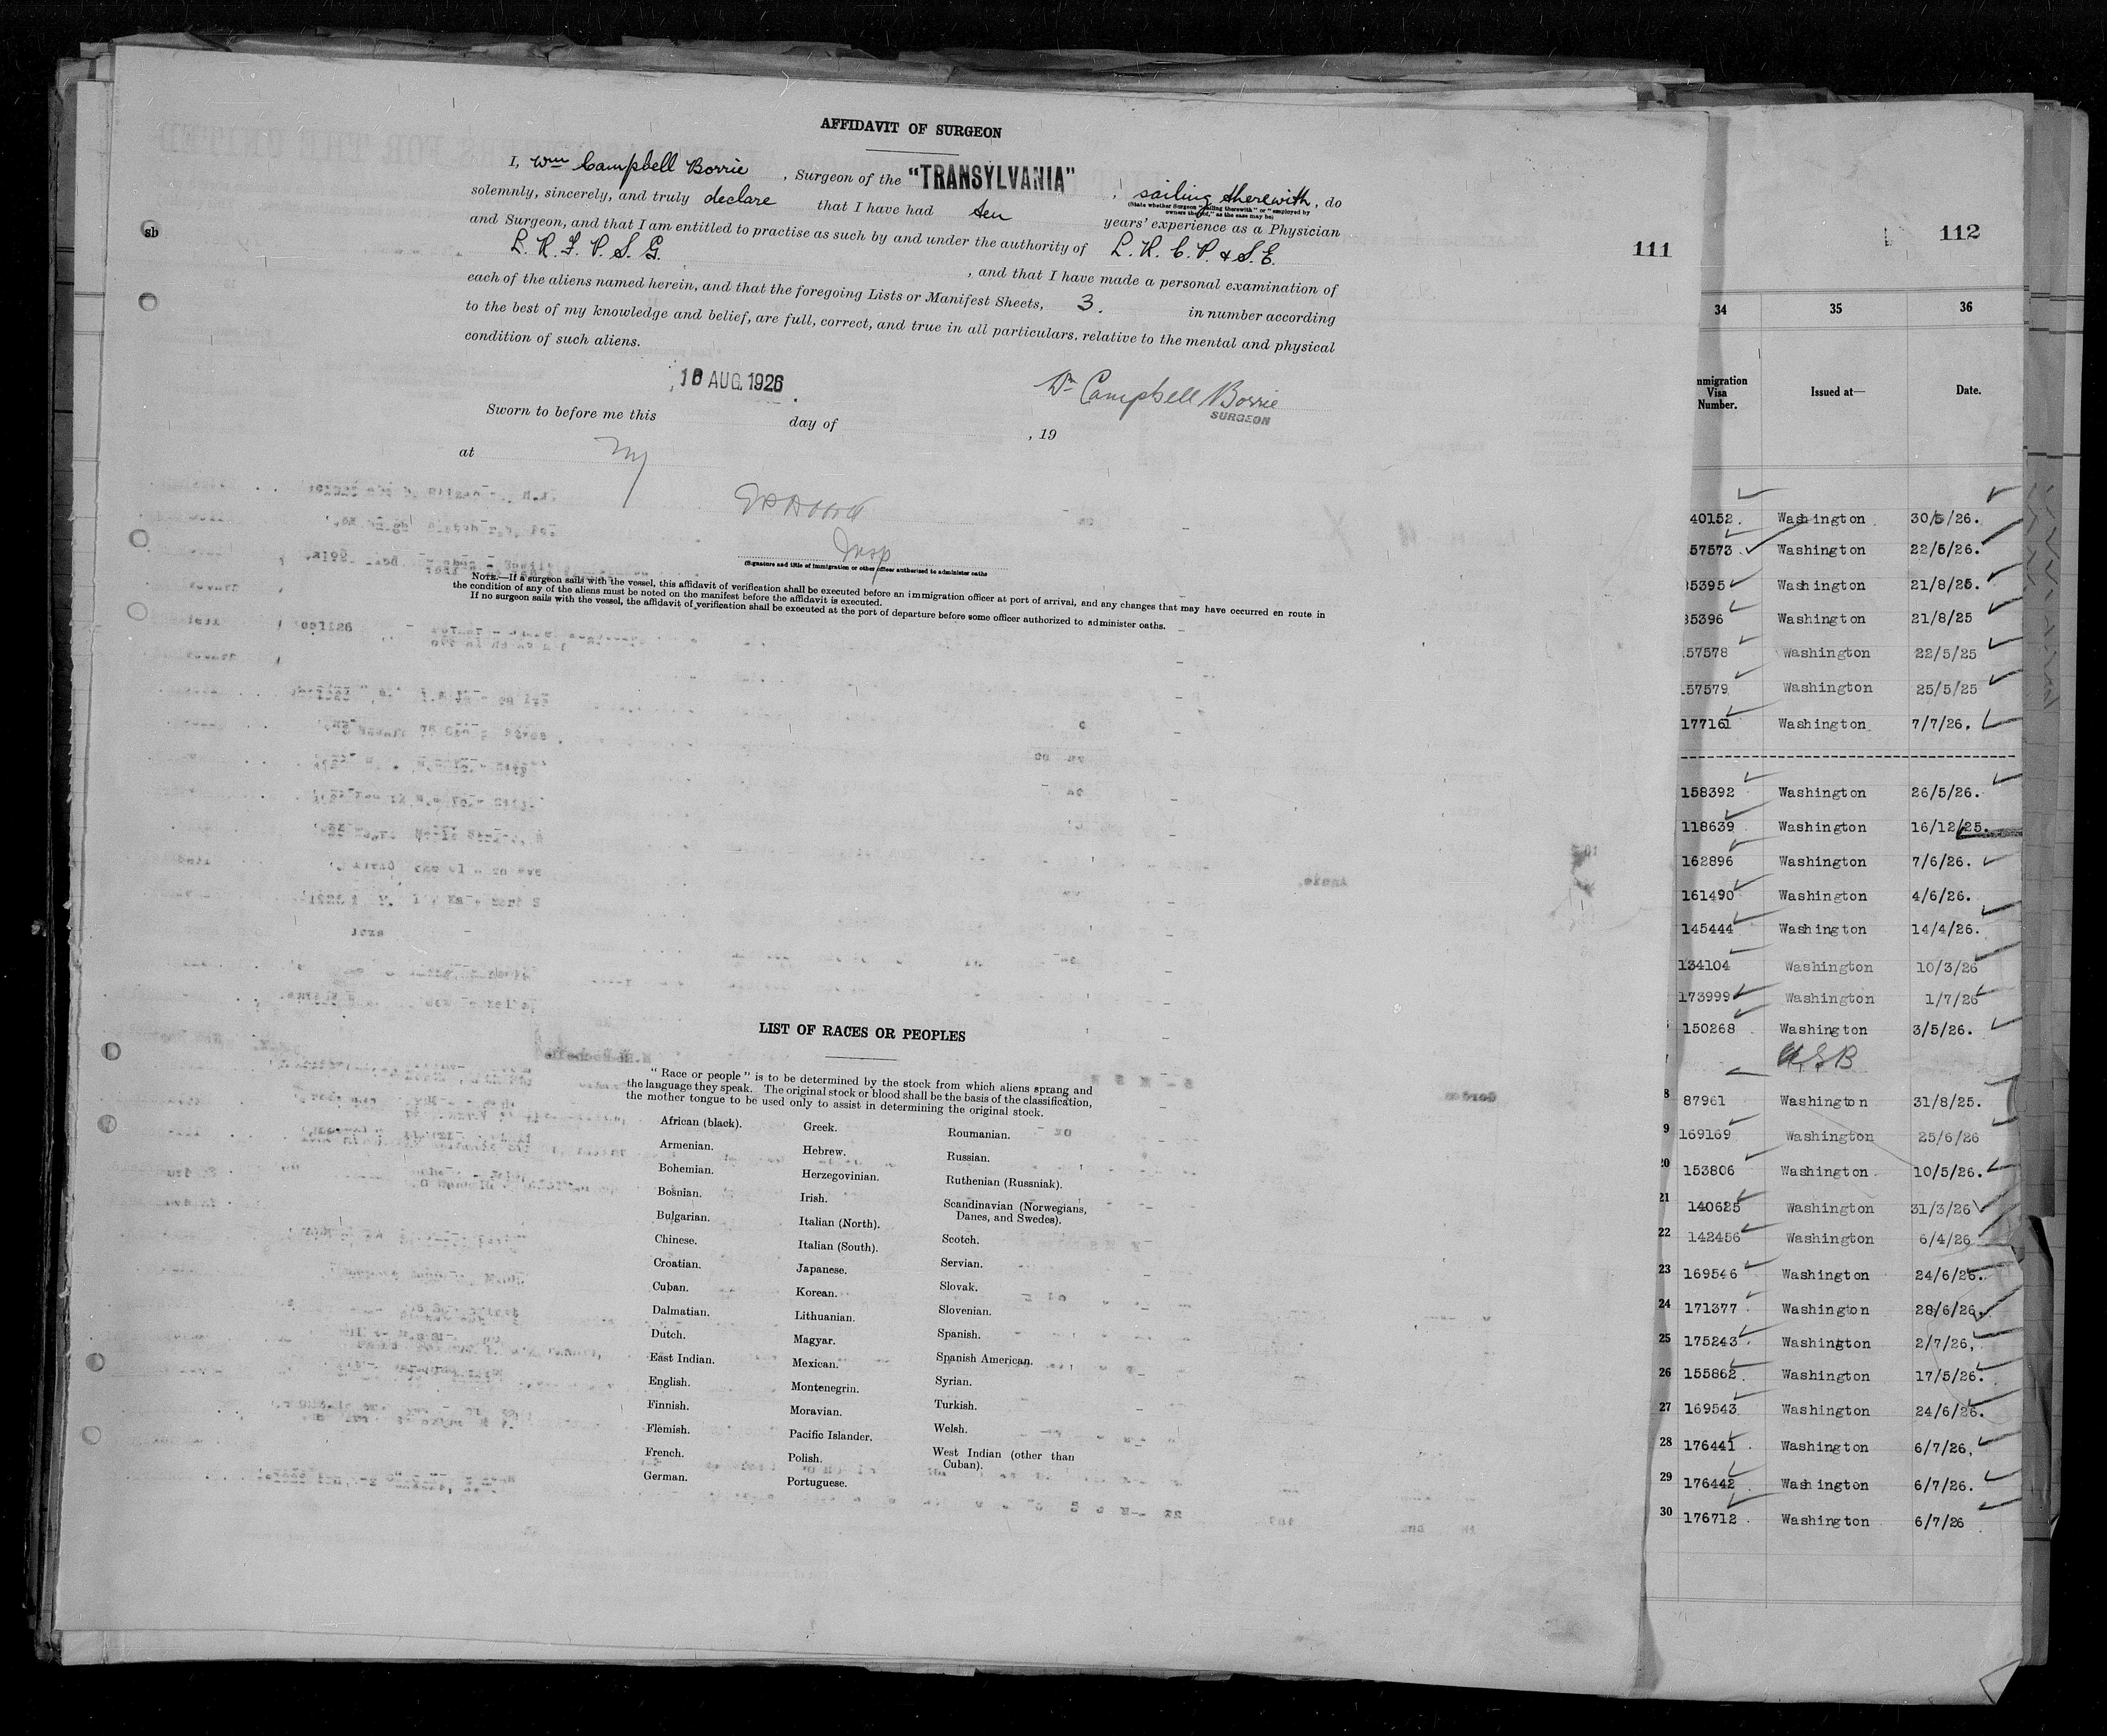 AFFIDAVIT OF SURGEON
I, Wm Campbell Borrie, Surgeon of the "TRANSYLVANIA", sailing therewith, do
(State whether Surgeon "sailing therewith" or "employed by
owners thereof," as the case may be)
solemnly, sincerely, and truly declare that I have had ten years' experience as a Physician
and Surgeon, and that I am entitled to practise as such by and under the authority of L. R. C. P. & S. E.
L. R. F. P. S. G., and that I have made a personal examination of
each of the aliens named herein, and that the foregoing Lists or Manifest Sheets, 3. in number according
to the best of my knowledge and belief, are full, correct, and true in all particulars, relative to the mental and physical
condition of such aliens.
Wm Campbell Borrie
SURGEON
AUG. 1926
Sworn to before me this day of , 19
at NY
Insp
(Signature and title of immigration or other officer authorized to administer oaths
NOTE.—If a surgeon sails with the vessel, this affidavit of verification shall be executed before an immigration officer at port of arrival, and any changes that may have occurred en route in
the condition of any of the aliens must be noted on the manifest before the affidavit is executed.
If no surgeon sails with the vessel, the affidavit of verification shall be executed at the port of departure before some officer authorized to administer oaths.
sb
111
LIST OF RACES OR PEOPLES
"Race or people" is to be determined by the stock from which aliens sprang and
the language they speak. The original stock or blood shall be the basis of the classification,
the mother tongue to be used only to assist in determining the original stock.
African (black).
Armenian.
Bohemian.
Bosnian.
Bulgarian.
Chinese.
Croatian.
Cuban.
Dalmatian.
Dutch.
East Indian.
English.
Finnish.
Flemish.
French.
German.
Greek.
Hebrew.
Herzegovinian.
Irish.
Italian (North).
Italian (South).
Japanese.
Korean.
Lithuanian.
Magyar.
Mexican.
Montenegrin.
Moravian.
Pacific Islander.
Polish.
Portuguese.
Roumanian.
Russian.
Ruthenian (Russniak).
Scandinavian (Norwegians,
Danes, and Swedes).
Scotch.
Servian.
Slovak.
Slovenian.
Spanish.
Spanish American.
Syrian.
Turkish.
Welsh.
West Indian (other than
Cuban).
112
34 35 36
mmigration
Visa
Number. Issued at— Date.
40152. Washington 30/5/26.
57573 Washington 22/5/26.
35395 Washington 21/8/25.
35396 Washington 21/8/25
57578 Washington 22/5/25
57579 Washington 25/5/25
177161 Washington 7/7/26.
158392 Washington 26/5/26.
118639 Washington 16/12/25.
162896 Washington 7/6/26.
161490 Washington 4/6/26.
145444 Washington 14/4/26.
134104 Washington 10/3/26
173999 Washington 1/7/26
150268 Washington 3/5/26.
USB
8 87961 Washington 31/8/25.
9 169169 Washington 25/6/26
20 153806 Washington 10/5/26.
21 140625 Washington 31/3/26
22 142456 Washington 6/4/26
23 169546 Washington 24/6/26.
24 171377 Washington 28/6/26.
25 175243 Washington 2/7/26,
26 155862 Washington 17/5/26.
27 169543 Washington 24/6/26.
28 176441 Washington 6/7/26,
29 176442 Washington 6/7/26.
30 176712 Washington 6/7/26